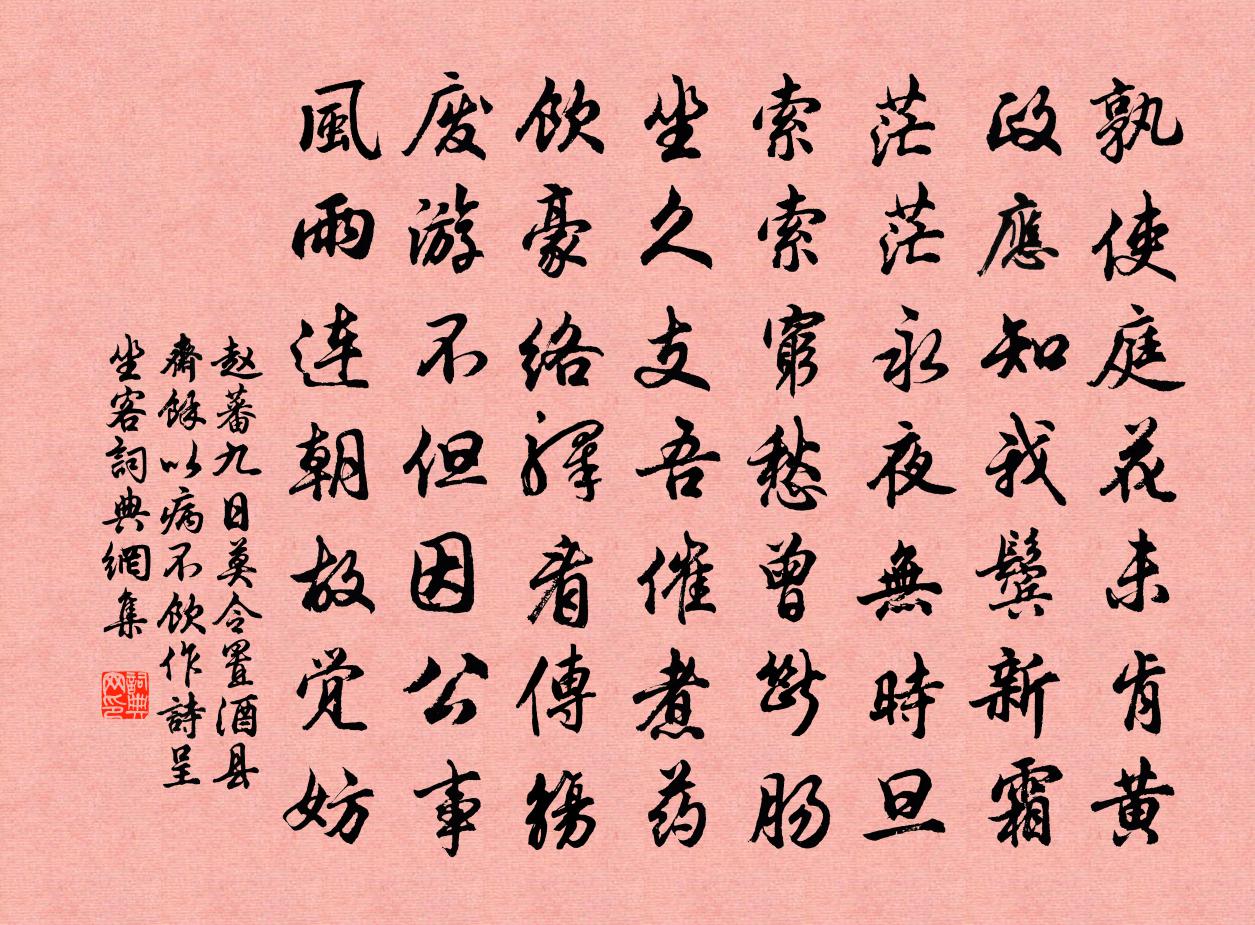 孰使庭花未肯黄
政應知我鬓新霜
茫茫永夜無時旦
索索窮愁曾断肠
坐久支吾催煮药
飲豪絡繹看傳觴
废游不但因公事
風雨连朝故觉妨
赵蕃九日莫令置酒县
齋餘以病不飲作詩呈
坐客詞典網集
詞典网印